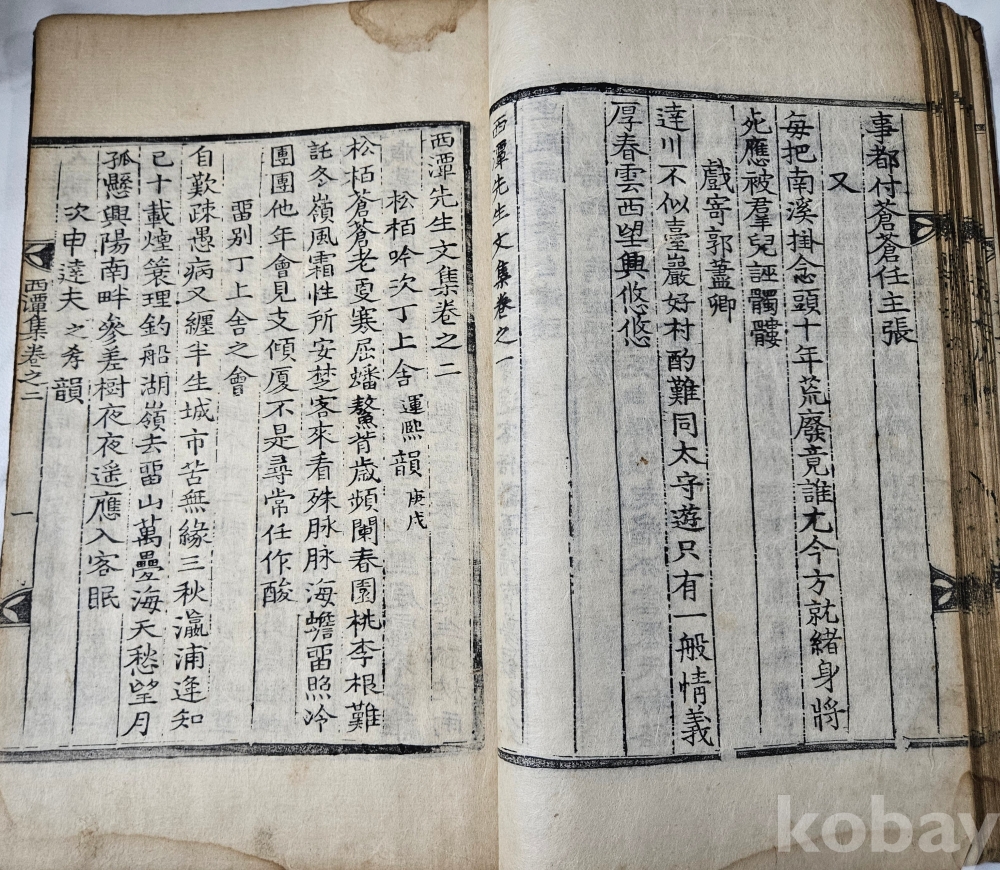 事都付蒼蒼任主張
又
每把南溪掛念頭十年荒廢竟誰尤今方就緒身將
死應被羣兒誣髑髏
戲寄郭藎卿
達川不似臺巖好村酌難同太守遊只有一般情義
厚春雲西望興悠悠
西潭先生文集卷之一
西潭先生文集卷之二
松栢吟次丁上舍運熙韻庚戌
松栢蒼蒼老夏寒屈蟠鰲背歲頻闌春園桃李根難
託冬嶺風霜性所安楚客來看殊脉脉海蟾留照冷
團團他年會見支傾厦不是尋常任作酸
留別丁上舍之會
自歎疎愚病又纏半生城市苦無緣三秋瀛浦逢知
己十載煙簑理釣船湖嶺去留山萬疊海天愁望月
孤懸興陽南畔參差樹夜夜遙應入客眠
次申達夫之孝韻
西潭集卷之二
一
kobay